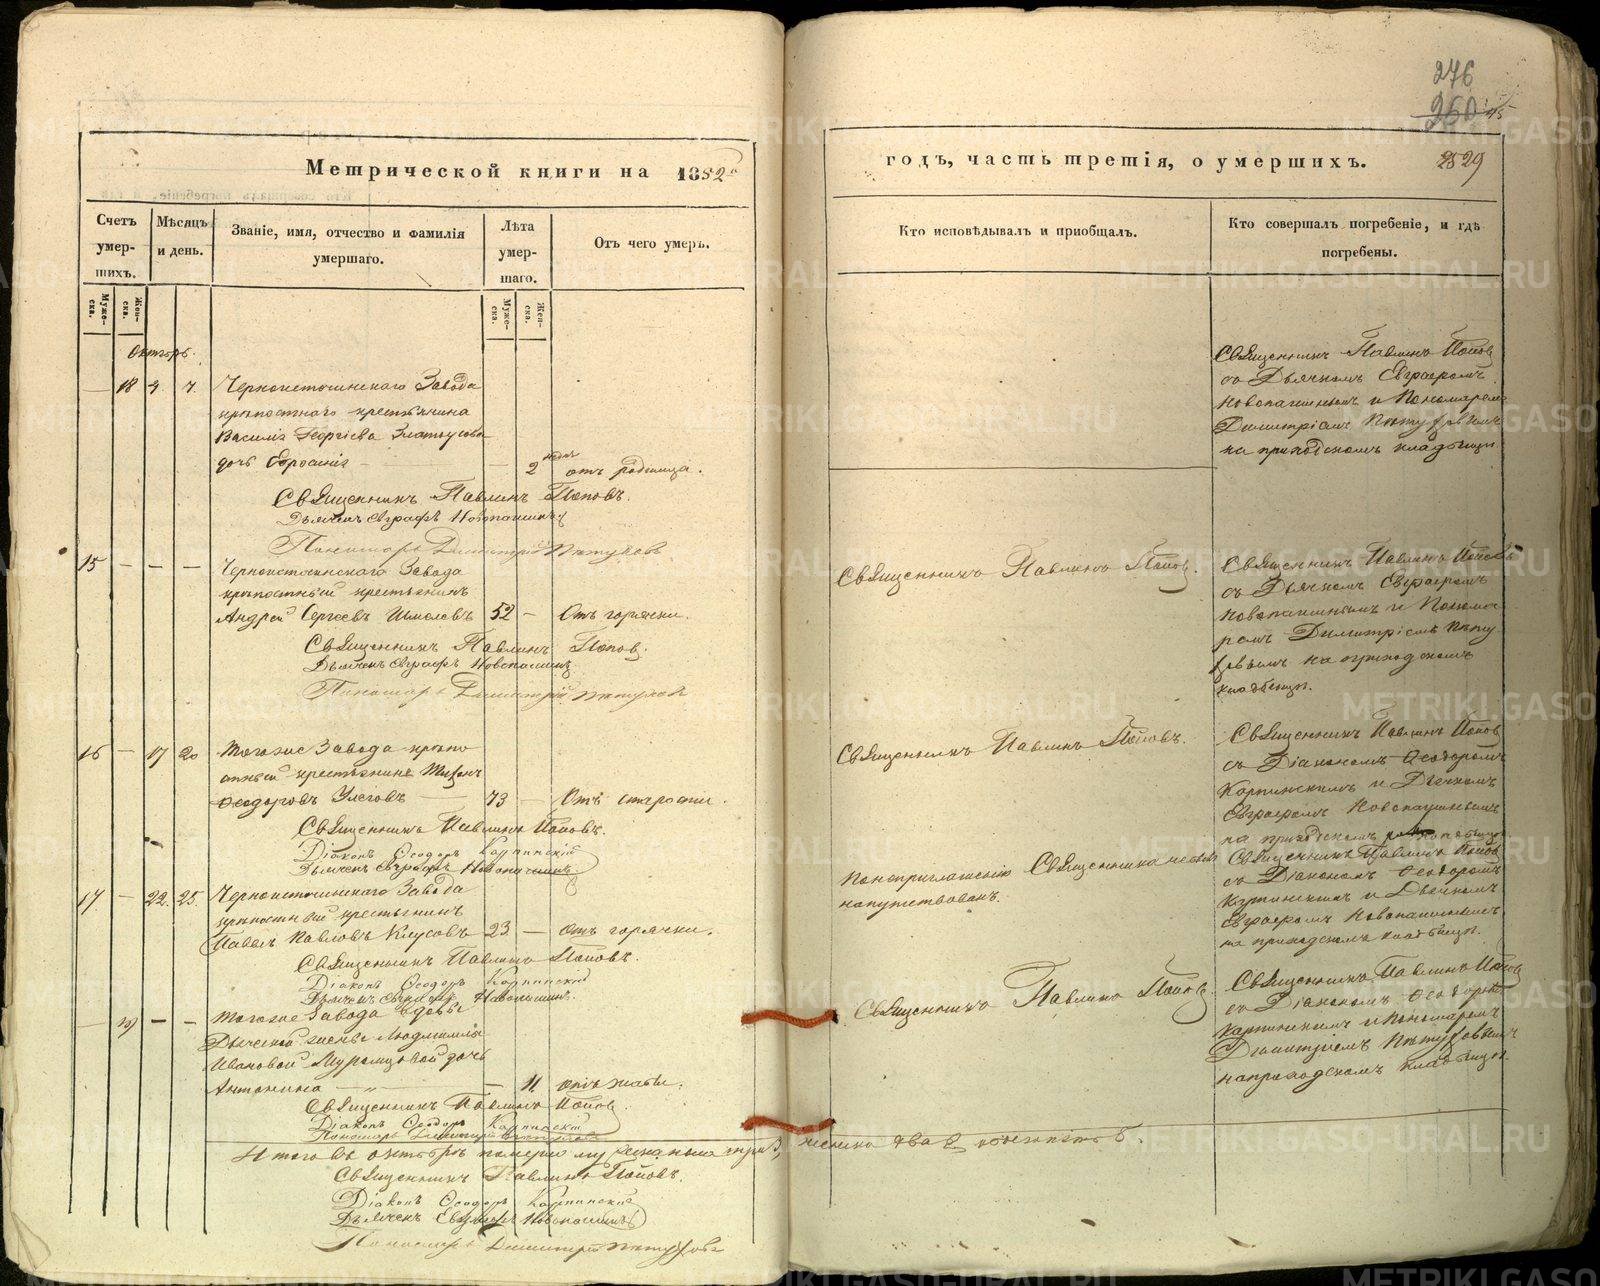 276
260
Метрической книги на 1852й
годъ, часть третія, о умершихъ.
2529
Счетъ умер-шихъ.
Мѣсяцъ и день.
Званіе, имя, отчество и фамилія умершаго.
Лѣта умер-шаго.
Отъ чего умеръ.
Кто исповѣдывалъ и пріобщалъ.
Кто совершалъ погребеніе, и гдѣ погребены.
Муже-ска.
Жен-ска.
Муже-ска.
Жен-ска.
Октябрь.
— 18 4 7. Черноисточинскаго Завода
крѣпостнаго крестьянина
Василія Георгіева Златоусова
дочь Евросинія — — 2 недѣл отъ родимца.
Священникъ Павлинъ Поповъ.
Дьячекъ Евграфъ Новопашинъ
Пономарь Димитрій Пѣтуховъ
Священникъ Павлинъ Попов
со Дьячкомъ Евграфомъ
Новопашинымъ и Пономаремъ
Димитріемъ Пѣтуховымъ
на приходскомъ кладбищѣ
15 — — — Черноисточинскаго Завода
крѣпостный крестьянинъ
Андрей Сергѣевъ Шмелевъ 52 — Отъ горячки.
Священникъ Павлинъ Попов.
Дьячекъ Евграфъ Новопашинъ
Пономарь Димитрій Пѣтухов
Священникъ Павлинъ Попов.
Священникъ Павлинъ Поповъ
съ Дьячкомъ Евграфомъ
Новопашинымъ и Понома
ремъ Димитріемъ Пѣту
ховымъ на приходскомъ
кладбищѣ.
16 — 17 20 Тогоже Завода крѣпо
стный крестьянинъ Тихонъ
Ѳеодоровъ Улеговъ — 73 — Отъ старости.
Священникъ Павлинъ Поповъ.
Діаконъ Ѳеодоръ Карпинскій
Дьячекъ Евграфъ Новопашинъ
Священникъ Павлинъ Поповъ.
Священникъ Павлинъ Попов
съ Діакономъ Ѳеодоромъ
Карпинскимъ и Дьячкомъ
Евграфомъ Новопашинымъ
на приходскомъ кладбищѣ
17. — 22. 25. Черноисточинскаго Завода
крѣпостный крестьянинъ
Павелъ Павловъ Клусовъ 23 — отъ горячки.
Священникъ Павлинъ Поповъ.
Діаконъ Ѳеодоръ Карпинскій
Дьячекъ Евграфъ Новопашинъ.
Понеприглашенію Священника небылъ
напутствованъ.
Священникъ Павлинъ Попов
съ Діакономъ Ѳеодоромъ
Карпинскимъ и Дьячкомъ
Евграфомъ Новопашинымъ
на приходскомъ кладбищѣ.
— 19 — — Тогоже Завода вдовы
Дьяческой жены Людмиллы
Ивановой Муромцовой дочь
Антонина — — 11 отъ жабы.
Священникъ Павлинъ Попов.
Діаконъ Ѳеодоръ Карпинскій
Пономарь Димитрій Пѣтуховъ
Священникъ Павлинъ Попов.
Священникъ Павлинъ Попов
со Діакономъ Ѳеодоромъ
Карпинскимъ и Пономаремъ
Димитріемъ Пѣтуховымъ
на приходскомъ кладбищѣ.
Итого въ октябрѣ померло мужеска пола три 3, женска два 2, обоего пять 5.
Священникъ Павлинъ Поповъ.
Діаконъ Ѳеодоръ Карпинскій
Дьячекъ Евграфъ Новопашинъ
Пономарь Димитрій Пѣтуховъ
METRIKI.GASO-URAL.RU